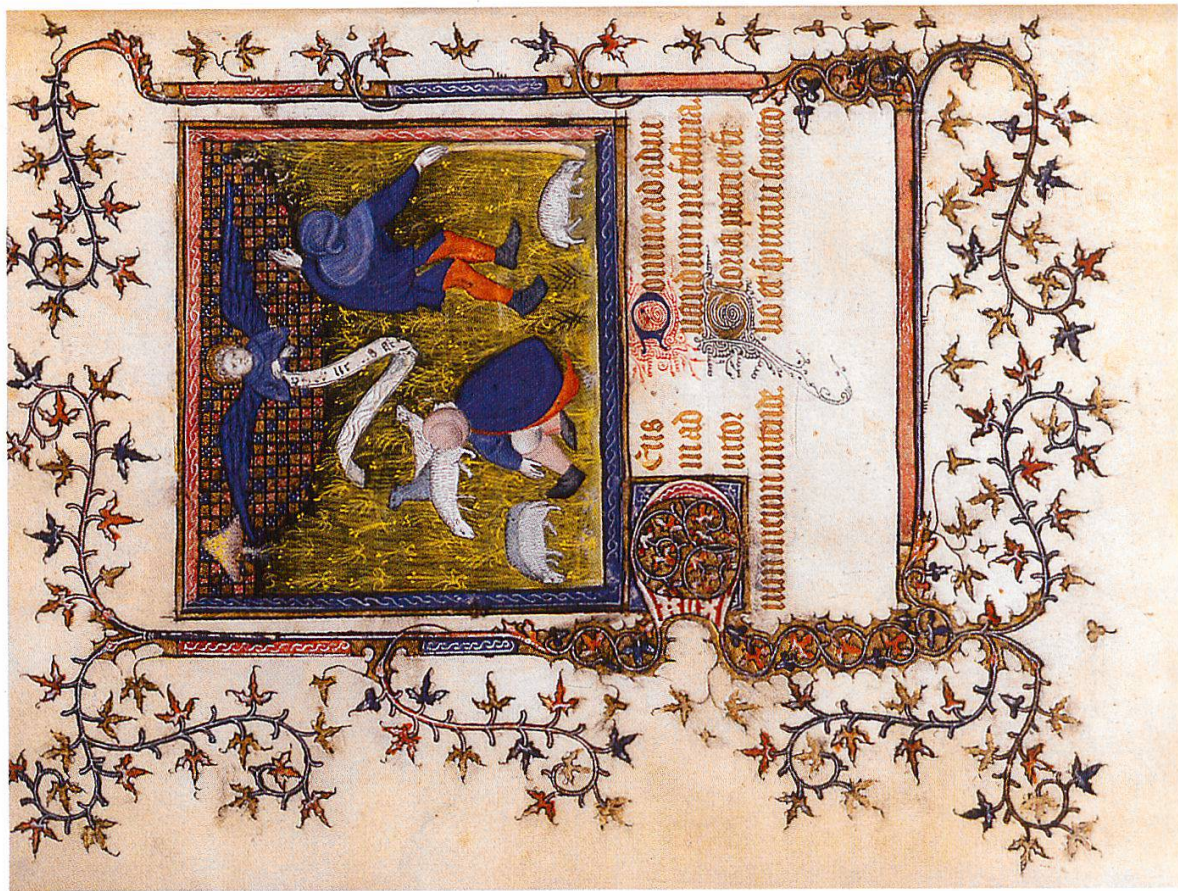 Deus
in ad
iutor
ium meum intende.
Domine ad adiu
uandum me festina.
Gloria patri et fi
lio et spiritui sancto